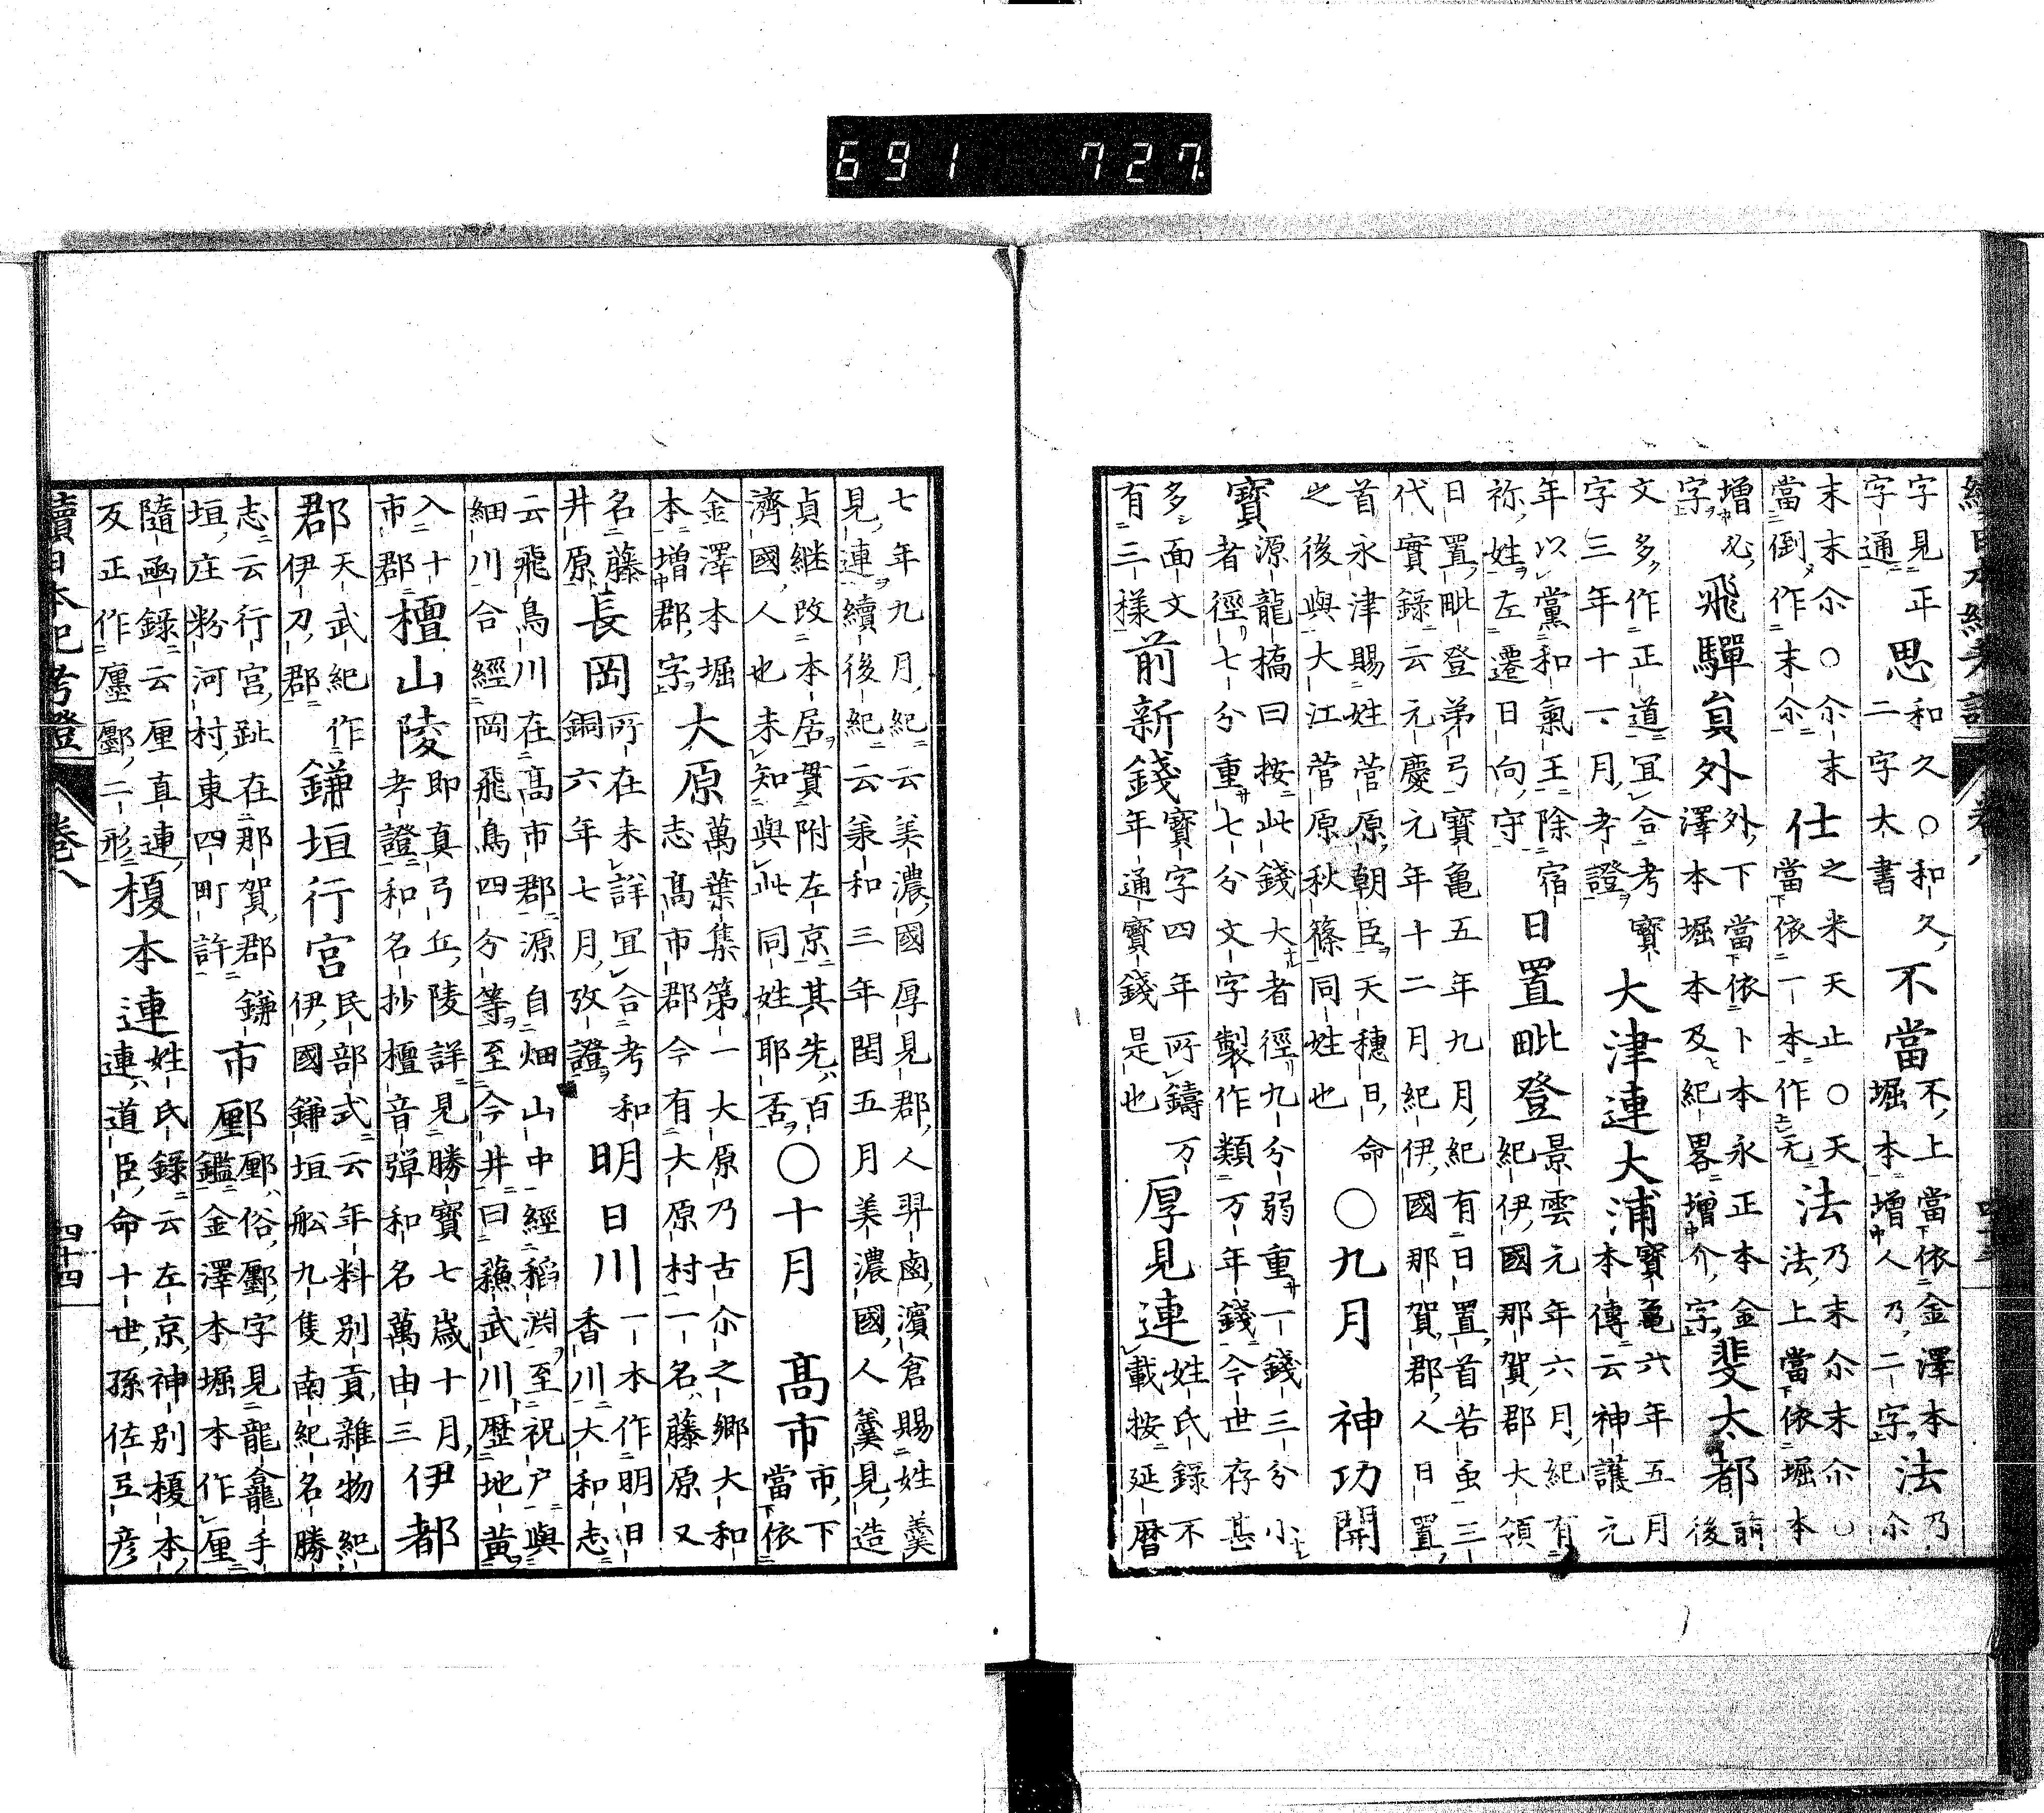 691 727
字見正思和久○和久不當不上當依金澤本法乃
字通二字大書堀本増人乃二字尒
末末尒○尒末仕之米天止○天法乃末尒末尒○
當倒作末尒當依一本作无法上當依堀本
増必飛驒員外外下當依卜本永正本金斐太都前
字澤本堀本及紀畧増介字後
文多作正道冝合考寶大津連大浦寶亀六年五月
字三年十一月考證本傳云神護元
年以黨和氣王除宿日置毗登景雲元年六月紀有
祢姓左遷日向守紀伊國那賀郡大領
日置毗登弟弓寶亀五年九月紀有日置首若虫三
代實錄云元慶元年十二月紀伊國那賀郡人日置
首永津賜姓菅原朝臣天穗日命○九月神功開
之後與大江菅原秋篠同姓也
寶源龍槁曰按此錢大者徑九分弱重一錢三分小
者徑七分重七分文字製作類万年錢今世存甚
多面文前新錢寶字四年所鑄万厚見連姓氏錄不
有三樣年通寶錢是也載按延暦
七年九月紀云美濃國厚見郡人羿鹵濱倉賜姓羹
見連續後紀云兼和三年閏五月美濃國人羹見造
貞継改本居貫附左京其先百○十月高市市下
濟國人也未知與此同姓耶否當依
金澤本堀大原萬葉集第一大原乃古尒之郷大和
本増郡字志高市郡今有大原村一名藤原又
名藤長岡所在未詳冝合考和明日川一本作明日
井原銅六年七月攷證香川大和志
云飛鳥川在高市郡源自畑山中經稻渕至祝户與
細川合經岡飛鳥四分等至今井曰蘓武川歴地黄
入十檀山陵即真弓丘陵詳見勝寶七歳十月伊都
市郡考證和名抄檀音彈和名萬由三
郡天武紀作鎌垣行宮民部式云年料別貢雜物紀
伊刀郡伊國鎌垣舩九隻南紀名勝
志云行宮趾在那賀郡鎌市㕓㕓俗鄽字見龍龕手
垣庄粉河村東四町許鑑金澤本堀本作厘
隨凾錄云厘直連榎本連姓氏錄云左京神別榎本
及正作廛鄽二形連道臣命十世孫佐弖彦
續日本紀考證 卷八 四十四